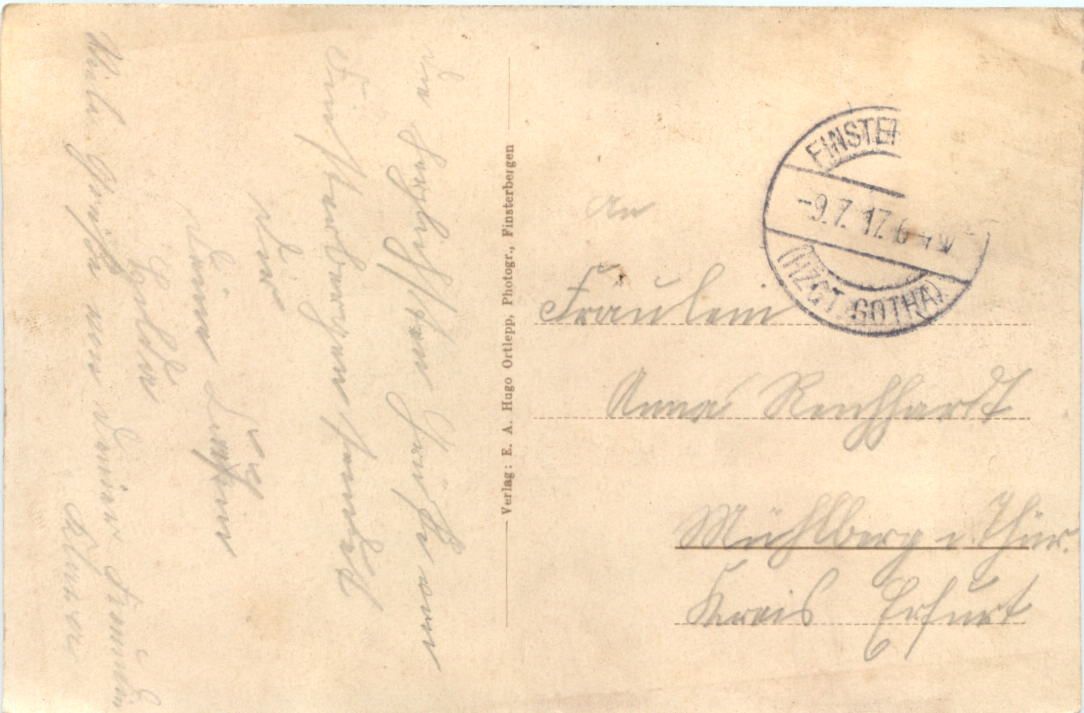 Die herzlichsten Grüße aus
Finsterbergen sendet
Dir
Deine
Viele Grüße von Deiner Freundin
Verlag: E. A. Hugo Ortlepp, Photogr., Finsterbergen
FINSTER
-9.7.17.6
(HZGT. GOTHA)
An
Fräulein
Anna Reichhardt
Mühlberg i. Thür.
Kreis Erfurt